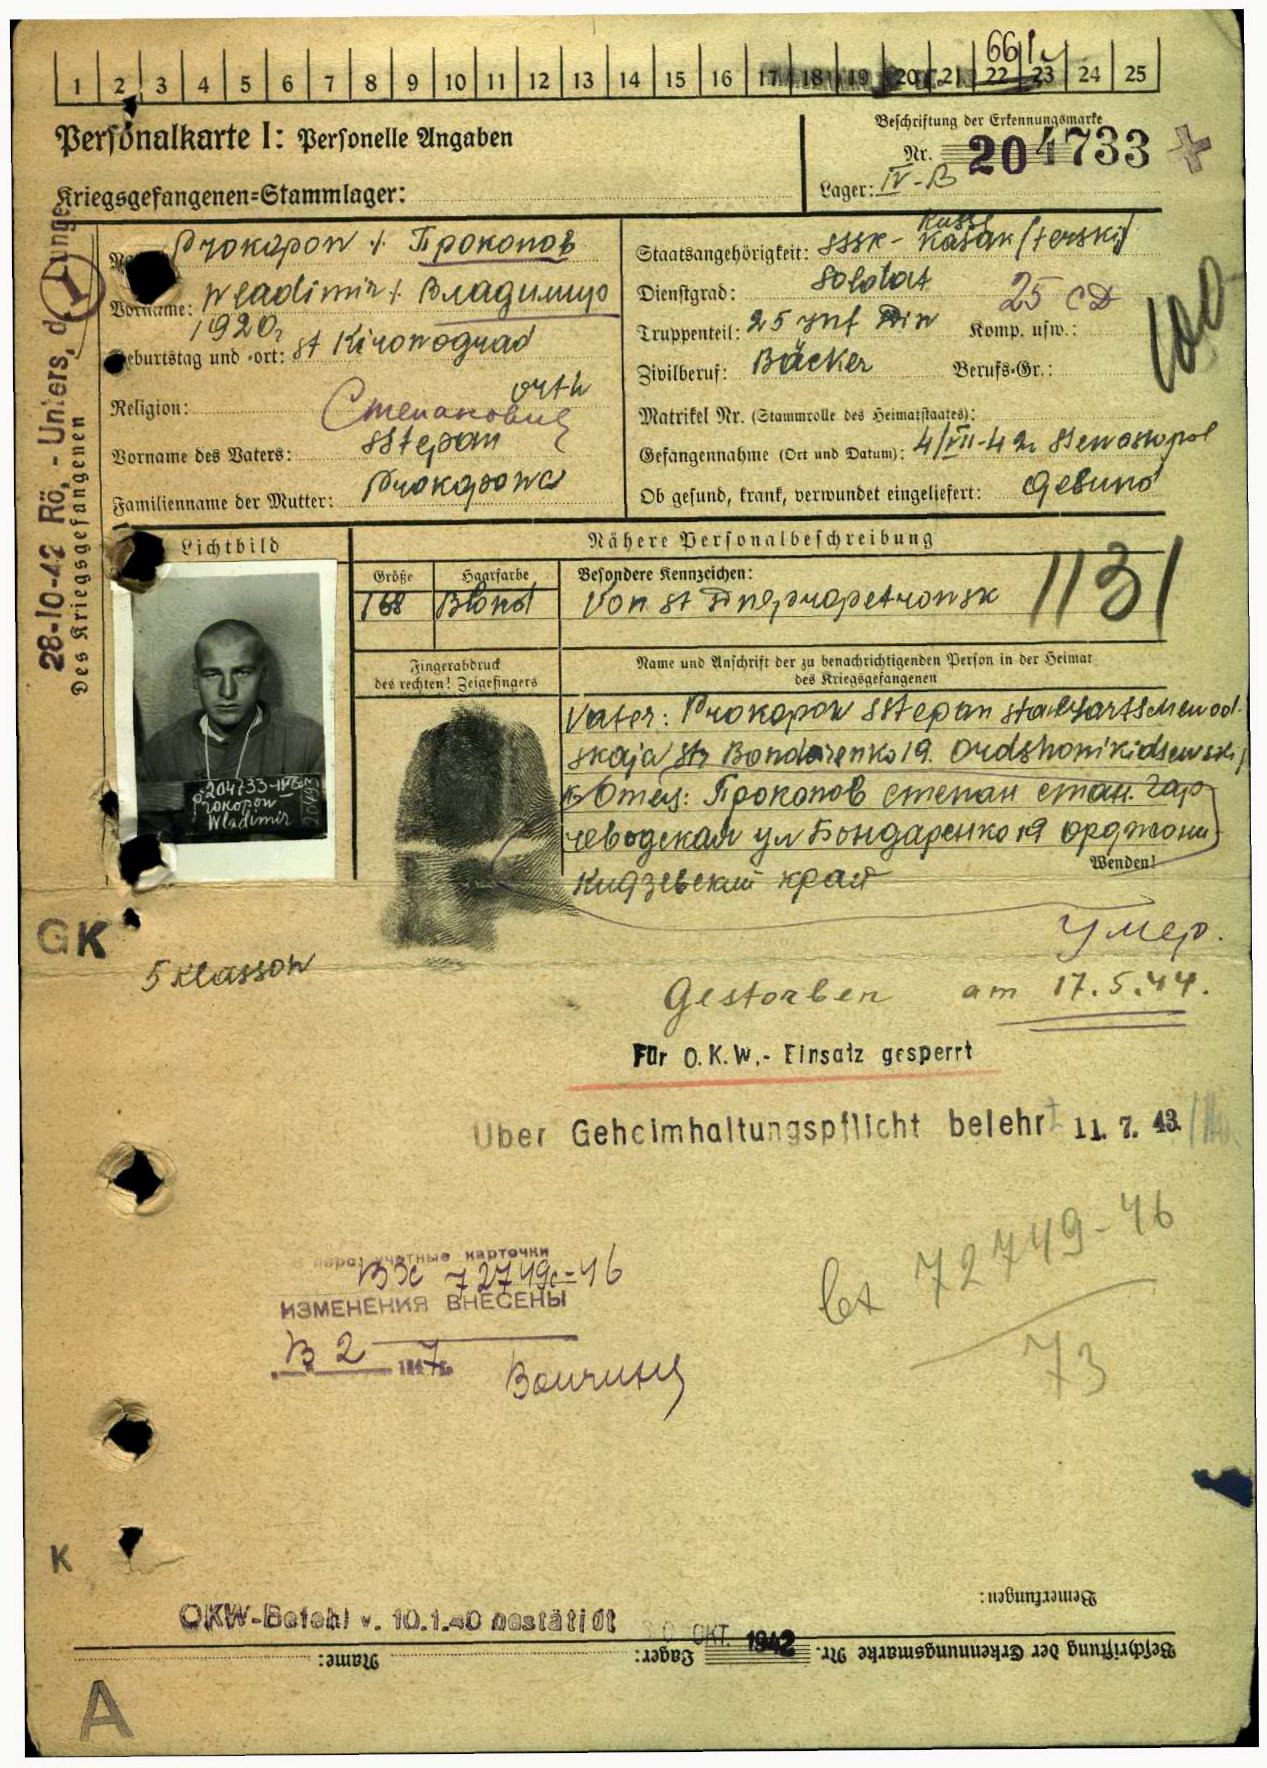 1 2 3 4 5 6 7 8 9 10 11 12 13 14 15 16 17 18 19 20 21 22 23 24 25
66/
Personalkarte I: Personelle Angaben
Beschriftung der Erkennungsmarke
Nr. 204733
Kriegsgefangenen=Stammlager:
Lager: IV-B
Prokopow /. Прокопов
Vorname: Wladimir /. Владимир
1920
Geburtstag und -ort: st Kironograd
Religion: orth
Степанович
Vorname des Vaters: sstepan
Familienname der Mutter: Prokopowa
Staatsangehörigkeit: SSSR- Kasak (terski)
Russe
Dienstgrad: Soldat
25 CD
Truppenteil: 25 Inf Diw Komp. usw.:
Zivilberuf: Bäcker Berufs-Gr.:
Matrikel Nr. (Stammrolle des Heimatstaates):
Gefangennahme (Ort und Datum): 4/VII-42 Sewastopol
Ob gesund, krank, verwundet eingeliefert: Gesund
28-10-42 Rö,- Unters, d, Lunge
Des Kriegsgefangenen
Lichtbild
Nähere Personalbeschreibung
Größe
Haarfarbe
Besondere Kennzeichen:
168
Blond
Von st Dnepropetrowsk
1131
Fingerabdruck
des rechten! Zeigefingers
Name und Anschrift der zu benachrichtigenden Person in der Heimat
des Kriegsgefangenen
Vater: Prokopow sstepan
skaja str Bondarenko 19. Ordshonikidsewski
Отец: Прокопов степан стан. Гор
чеводская ул Бондаренко 19 орджони
Wenden!
кидзевский край
204733-IVB
Prokopow
Wladimir
GK
5 klasson
Умер.
Gestorben am 17.5.44.
Für O.K.W,- Einsatz gesperrt
Über Geheimhaltungspflicht belehrt 11. 7. 43.
учетные карточки
72749-46
ИЗМЕНЕНИЯ ВНЕСЕНЫ
72749-46
73
K
Bemerkungen:
OKW-Befehl v. 10.1.40 bestätigt
OKT. 1942
Beschriftung der Erkennungsmarke Nr. Lager: Name:
A